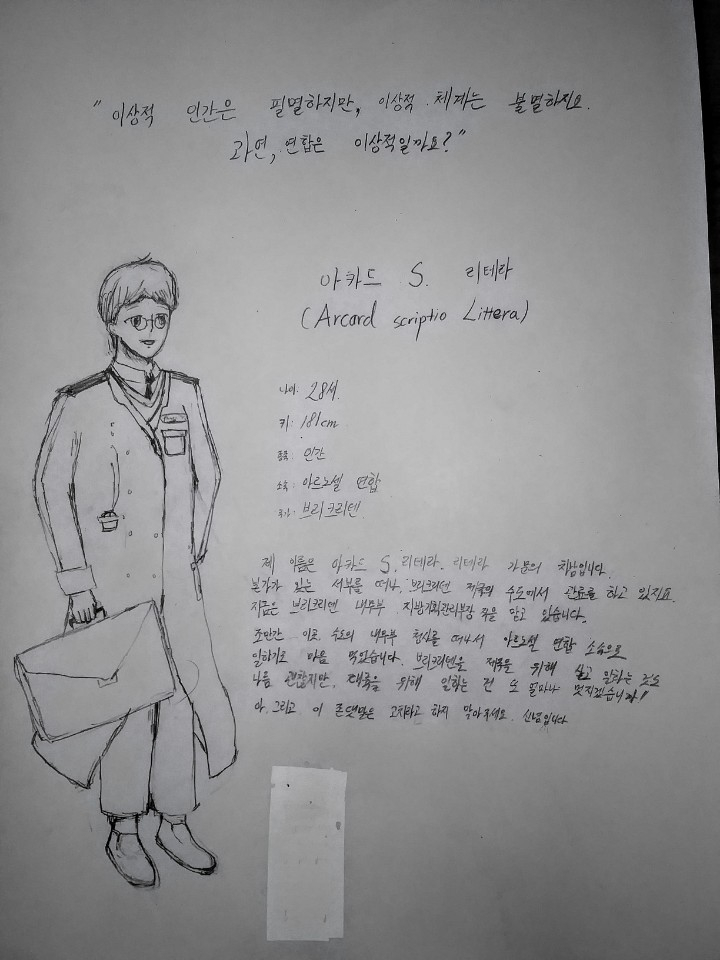 "이상적 인간은 필멸하지만, 이상적 체계는 불멸하지요.
과연, 연합은 이상적일까요?"
아카드 S. 리테라
(Arcard scriptio Littera)
나이: 28세.
키: 181cm
종족: 인간
소속: 아르노셀 연합
국가: 브리크리텐
제 이름은 아카드 S. 리테라. 리테라 가문의 차남입니다.
본가가 있는 서부를 떠나, 브리크리텐 제국의 수도에서 관료를 하고 있지요.
지금은 브리크리텐 내무부 지방기획관리부장 직을 맡고 있습니다.
조만간 이곳 수도의 내무부 청사를 떠나서 아르노셀 연합 소속으로
일하기로 마음 먹었습니다. 브리크리텐을 제국을 위해 살고 일하는 것도
나름 괜찮지만, 대륙을 위해 일하는 건 또 얼마나 멋지겠습니까!
아, 그리고 이 존댓말은 고치라고 하지 말아주세요. 신념입니다